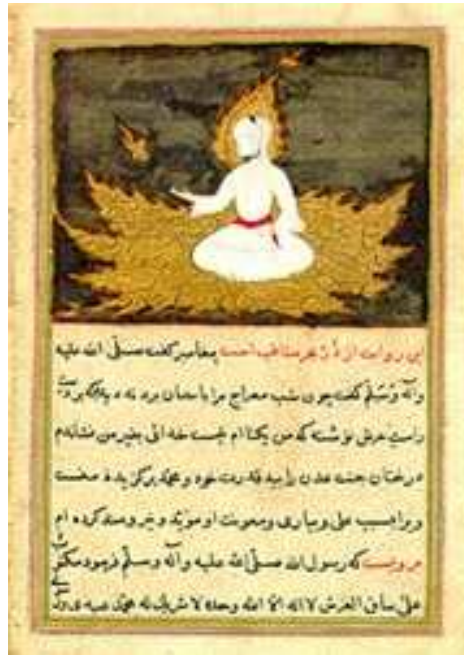 این روایت از در بحر مناقب است پیغامبر گفت صلی الله علیه
وآله وسلم گفت چون شب معراج مرا باسمان بردند دیدم که بر
راست عرش نوشته که من یکتا ام نیست خدائی بغیر من نشاندم
درختان جنت عدن را بید قدرت خود و محمد برگزیده منست
و برا بسبب علی ویاری ومعونت او مؤید و کرده ام
مرویست که رسول الله صلی الله علیه وآله وسلم فرمود مکتوب
علی ساق العرش لا اله الا الله وحده لا شریک له محمد عبدی و